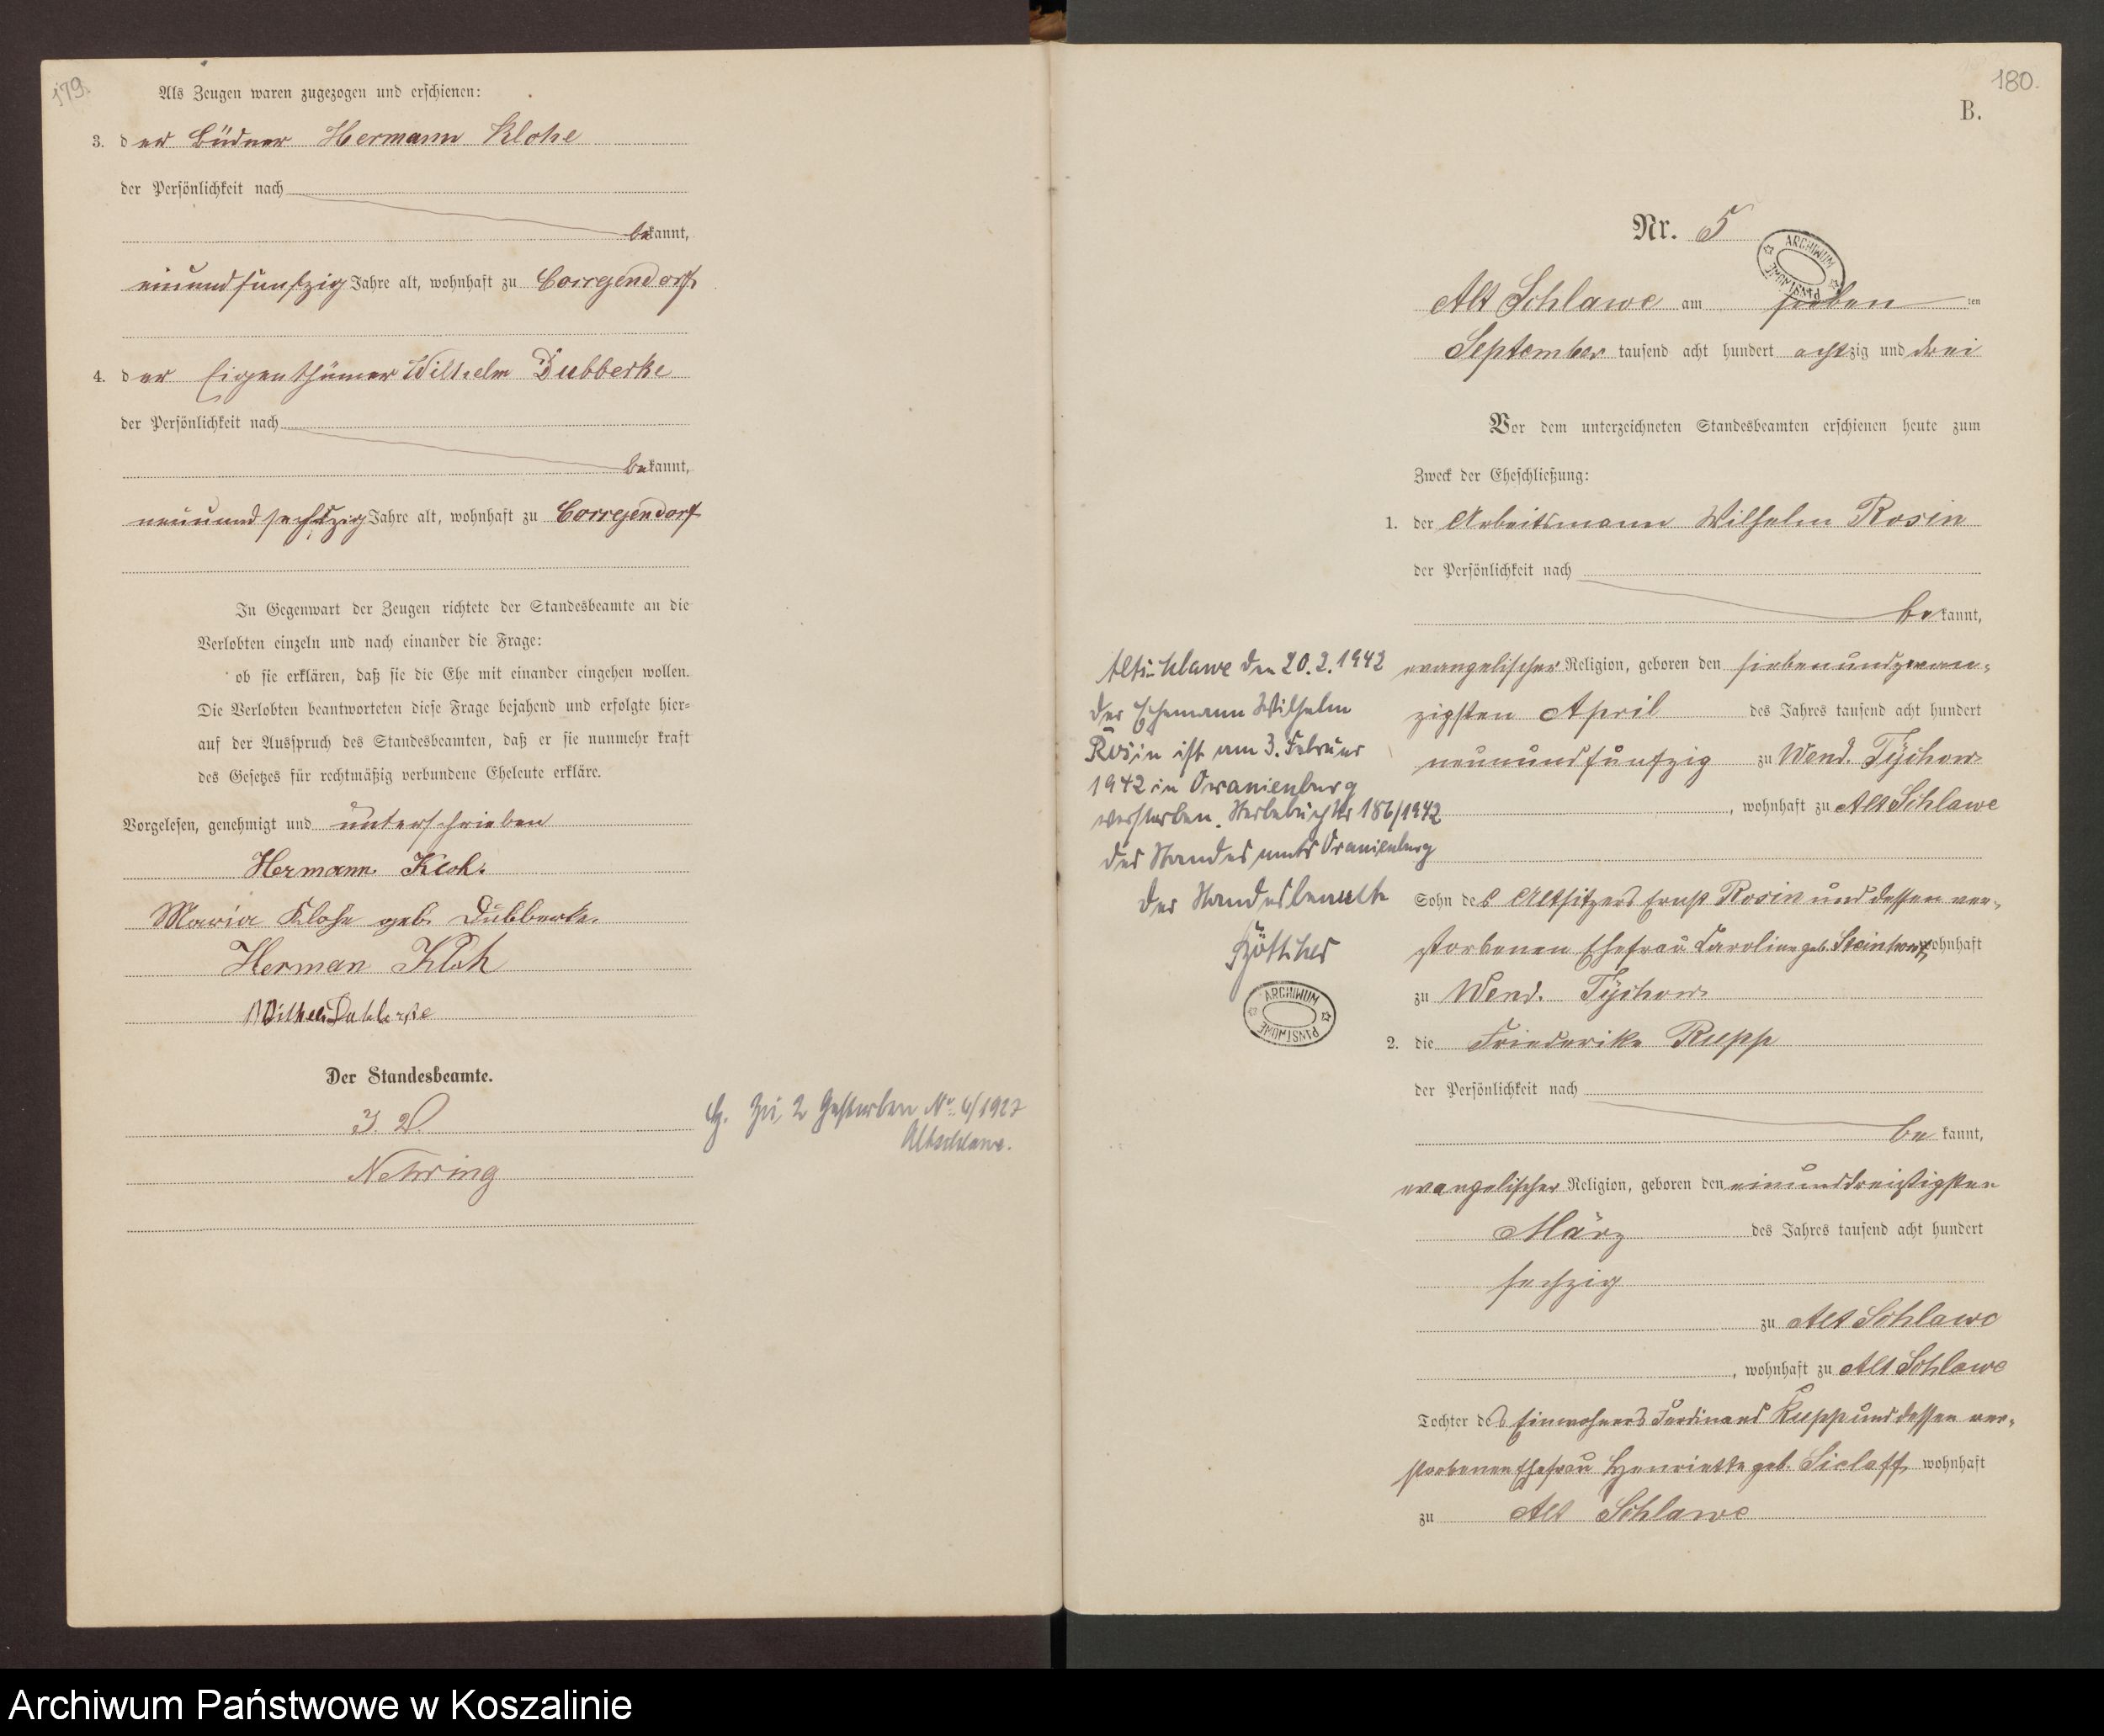 179.
Als Zeugen waren zugezogen und erschienen:
3. der Büdner Hermann Klohe
der Persönlichkeit nach
bekannt,
einundfünfzig Jahre alt, wohnhaft zu Coccejendorf
4. der Eigenthümer Wilhelm Dubberke
der Persönlichkeit nach
bekannt,
neunundsechszig Jahre alt, wohnhaft zu Coccejendorf
In Gegenwart der Zeugen richtete der Standesbeamte an die
Verlobten einzeln und nach einander die Frage:
ob sie erklären, daß sie die Ehe mit einander eingehen wollen.
Die Verlobten beantworteten diese Frage bejahend und erfolgte hier-
auf der Ausspruch des Standesbeamten, daß er sie nunmehr kraft
des Gesetzes für rechtmäßig verbundene Eheleute erkläre.
Vorgelesen, genehmigt und unterschrieben
Hermann
Maria Klohe geb. Dubberke.
Herman Kloh
Der Standesbeamte.
Nehring
Zu 2 Gestorben No 6/1927
Altschlawe.
180.
B.
Nr. 5
ARCHIWUM PAŃSTWOWE
Alt Schlawe am sieben ten
September tausend acht hundert achtzig und drei
Vor dem unterzeichneten Standesbeamten erschienen heute zum
Zweck der Eheschließung:
1. der Arbeitsmann Wilhelm Rosin
der Persönlichkeit nach
bekannt,
evangelischer Religion, geboren den siebenundzwan-
zigsten April des Jahres tausend acht hundert
neunundfünfzig zu Wend. Tychow
, wohnhaft zu Alt Schlawe
Sohn des Altsitzers Ernst Rosin und dessen ver-
storbenen Ehefrau Caroline geb. wohnhaft
zu Wend. Tychow
2. die Friederike Rupp
der Persönlichkeit nach
bekannt,
evangelischer Religion, geboren den einunddreißigsten
März des Jahres tausend acht hundert
sechzig
zu Alt Schlawe
, wohnhaft zu Alt Schlawe
Tochter des Einwohners Ferdinand Rupp und dessen ver-
storbenen Ehefrau Henriette geb. Siclaff, wohnhaft
zu Alt Schlawe
Altschlawe den 20.2.1942
Der Ehemann Wilhelm
Rosin ist am 3. Februar
1942 in Oranienburg
verstorben. Sterbebuch Nr 186/1942
des Standesamts Oranienburg
Der Standesbeamte
ARCHIWUM PAŃSTWOWE
Archiwum Państwowe w Koszalinie